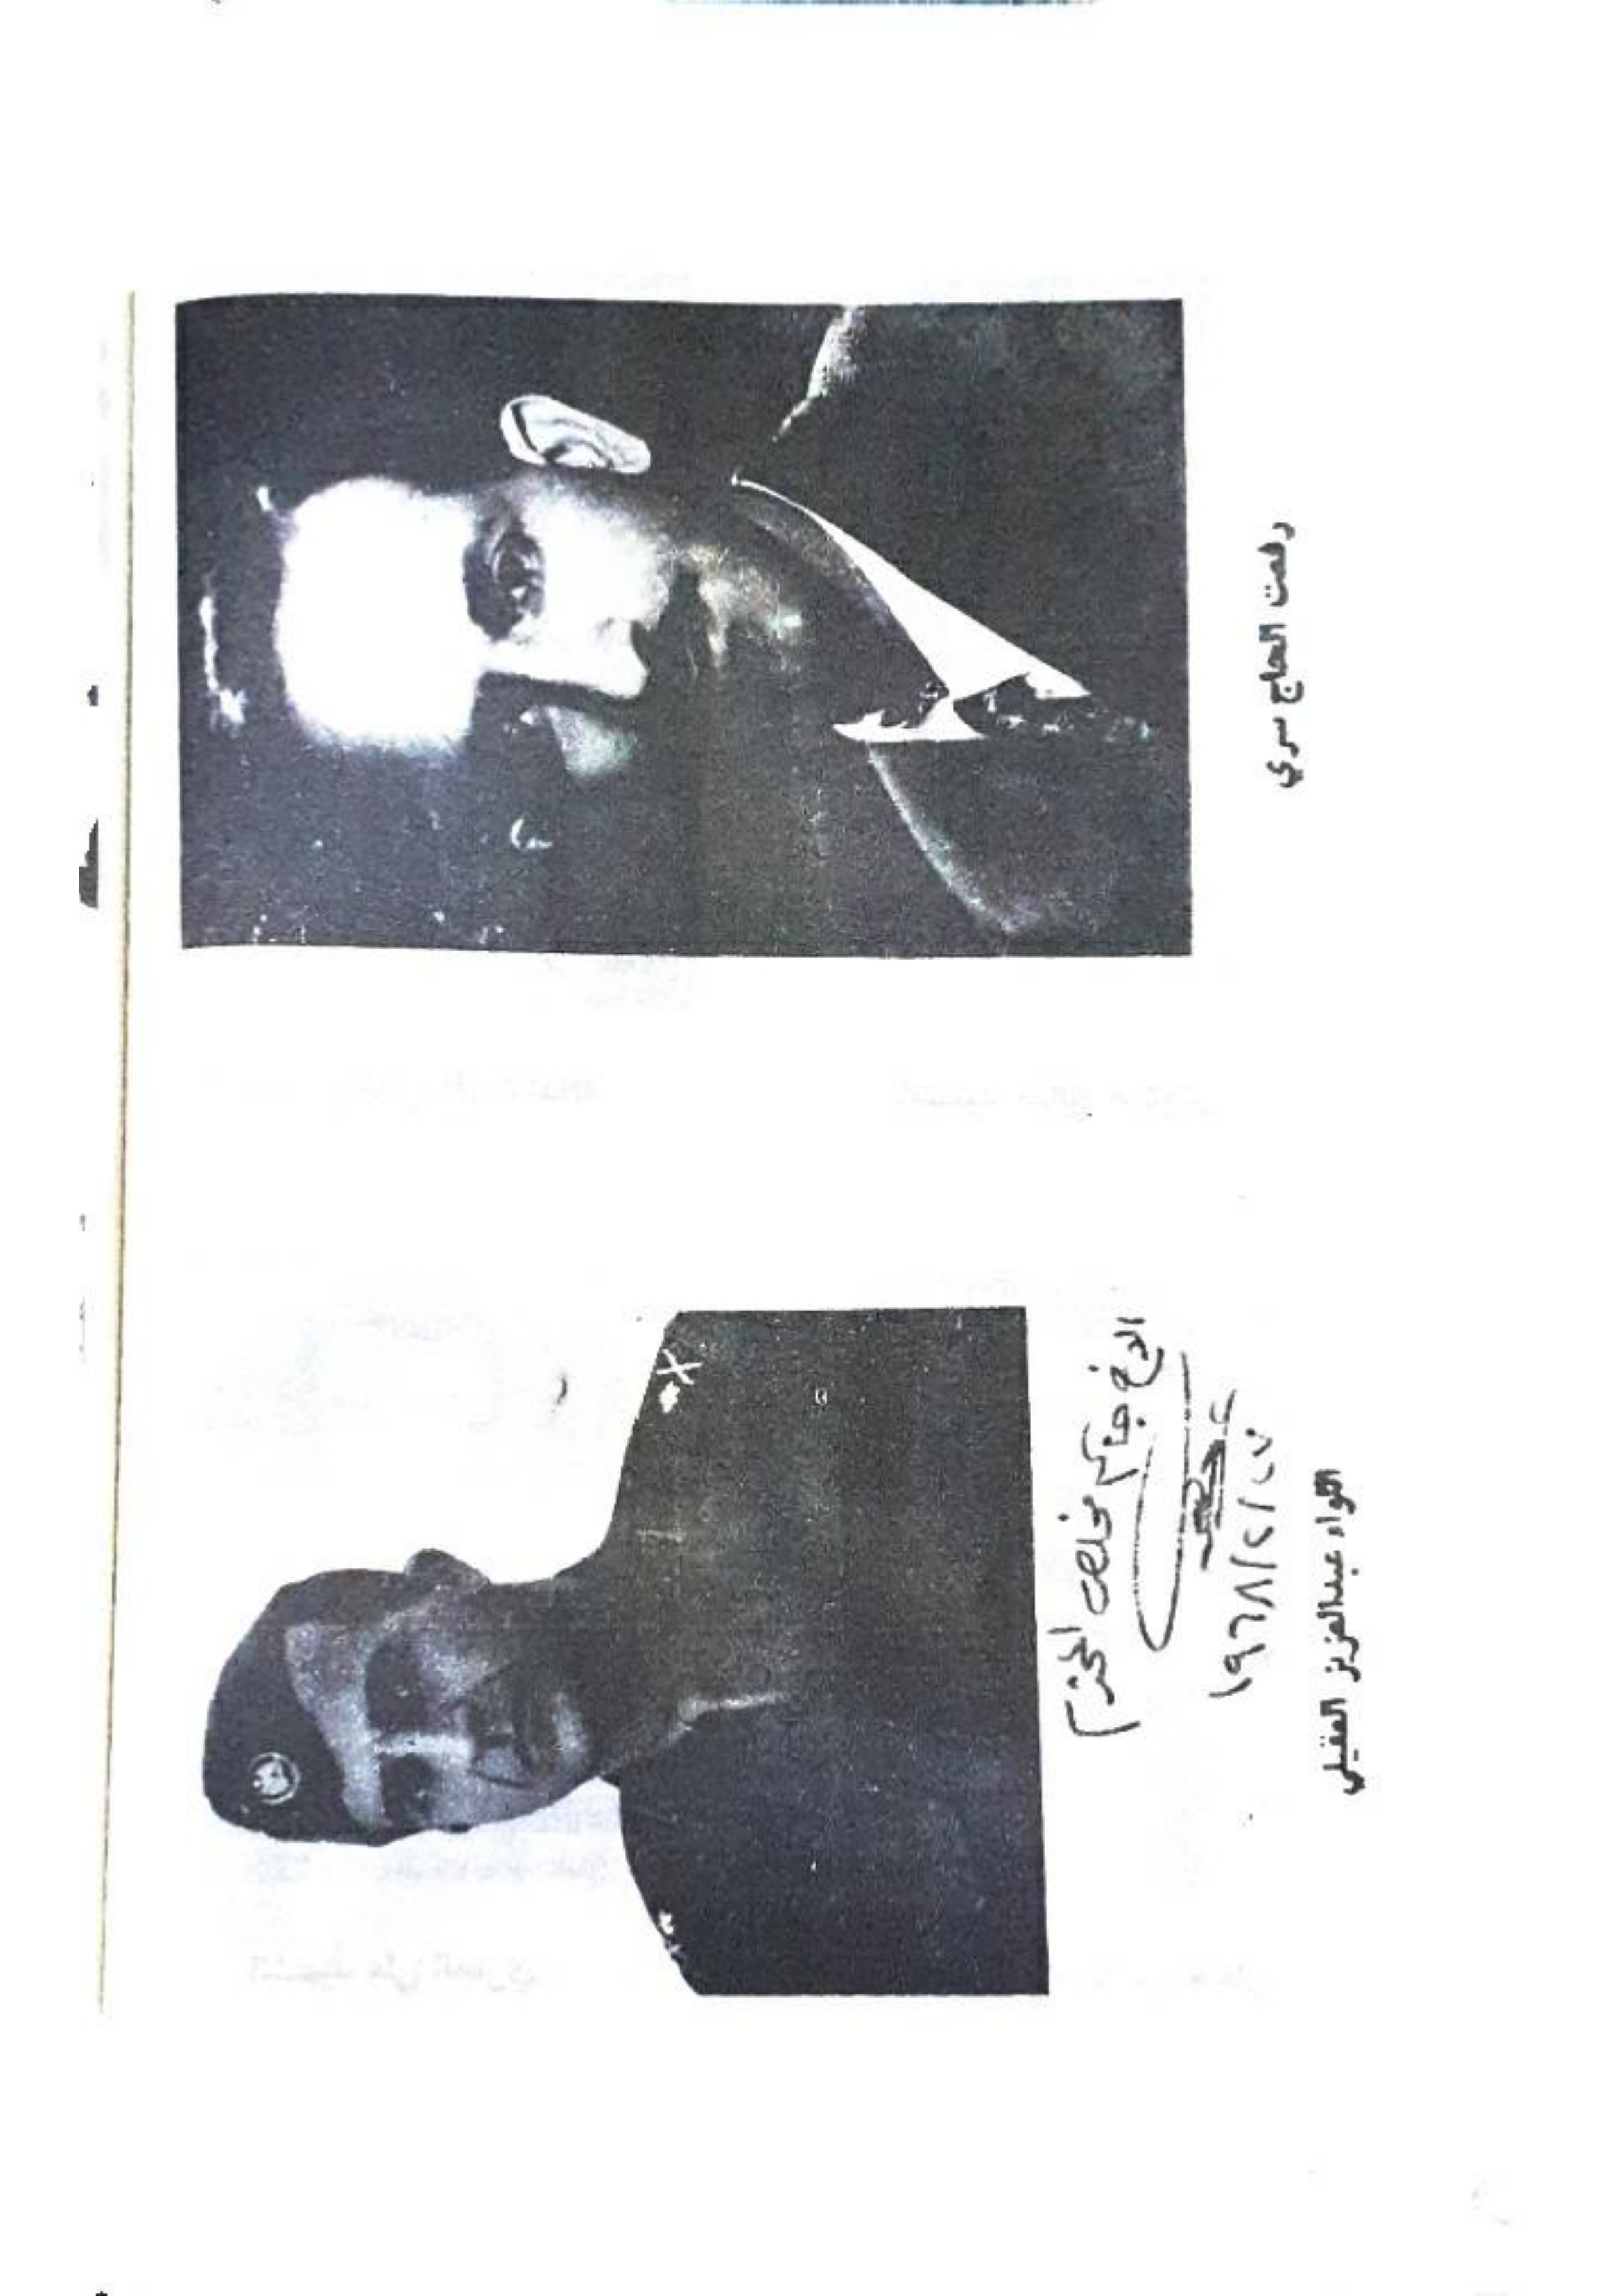 رفعت الحاج سري
الاخ جاسم مخلص المحترم
١٩٦٨/٢/٢٧
اللواء عبدالعزيز العقيلي